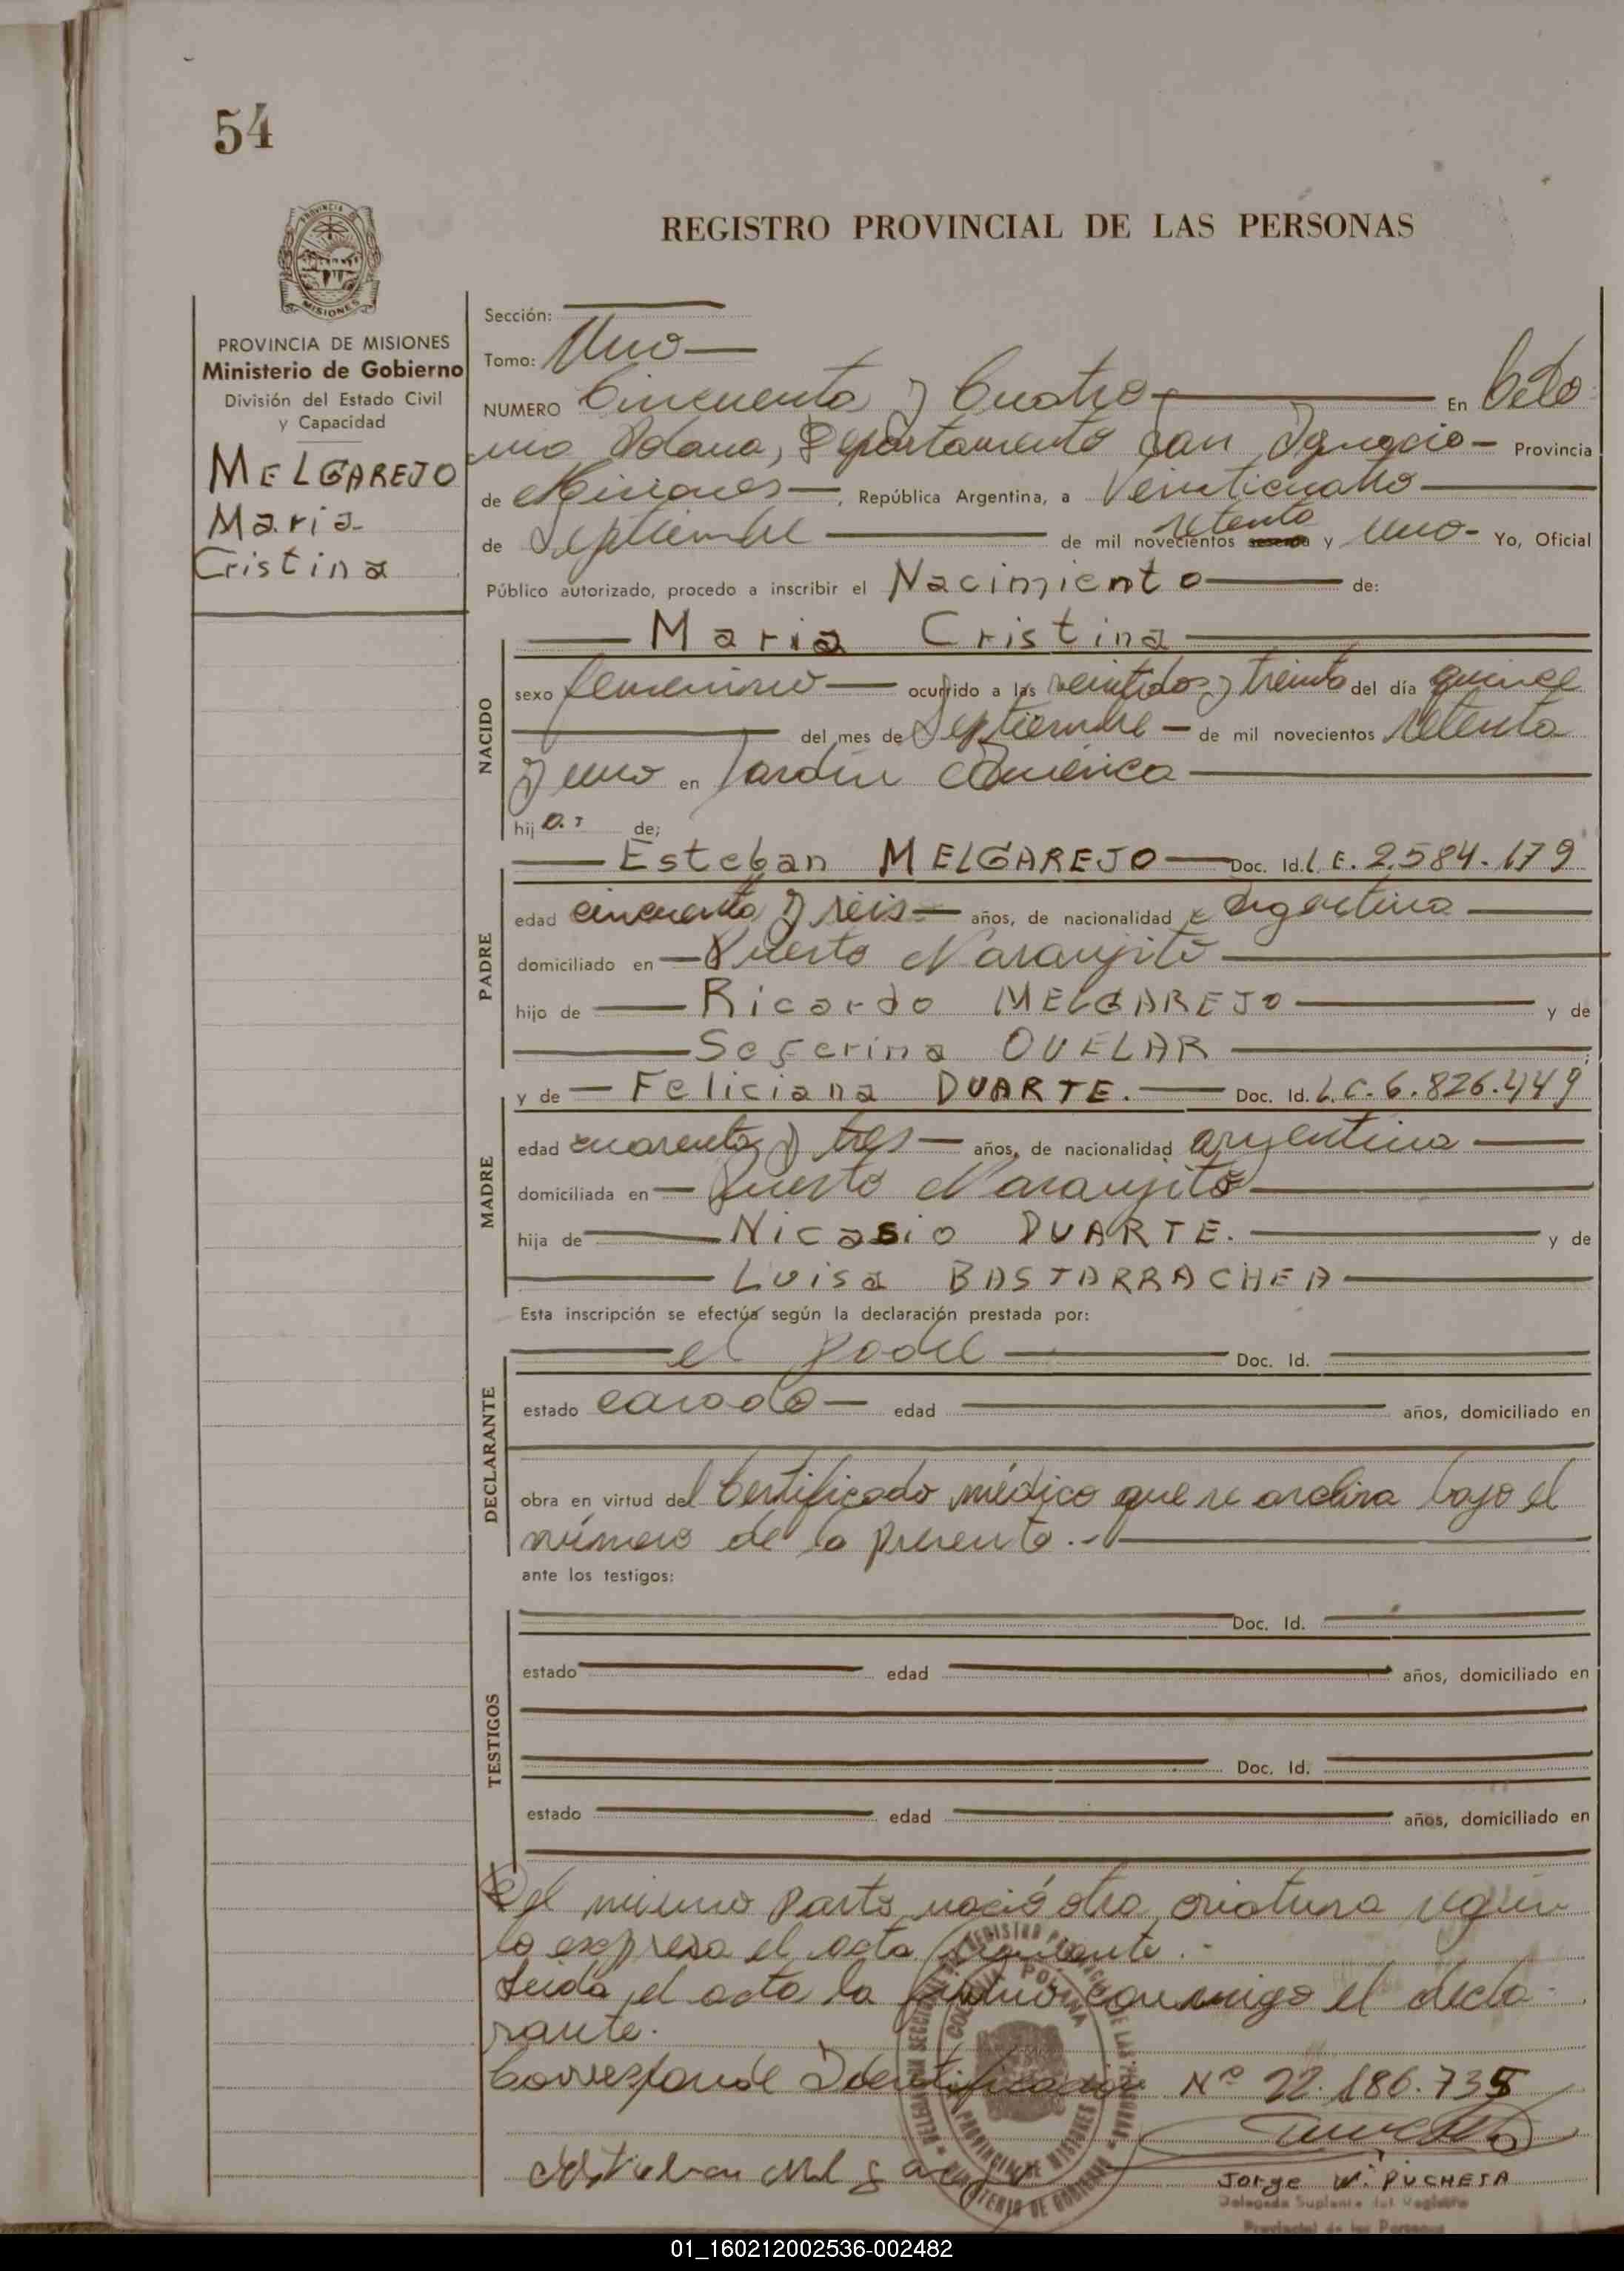 54
PROVINCIA DE
MISIONES
REGISTRO PROVINCIAL DE LAS PERSONAS
PROVINCIA DE MISIONES
Ministerio de Gobierno
División del Estado Civil
y Capacidad
MELGAREJO
Maria
Cristina
Sección:
Tomo: Uno
NUMERO Cincuenta y Cuatro En Colo
nia Polana, Departamento San Ignacio Provincia
de Misiones, República Argentina, a Veinticuatro
de Septiembre de mil novecientos setenta y uno Yo, Oficial
Público autorizado, procedo a inscribir el Nacimiento de:
NACIDO
Maria Cristina
sexo femenino ocurrido a las veintidos y treinta del día quince
del mes de Septiembre de mil novecientos setenta
y uno en Jardin America
hij a. de;
PADRE
Esteban MELGAREJO Doc. Id. L.E. 2.584.179
edad cincuenta y seis años, de nacionalidad argentina
domiciliado en Puerto Naranjito
hijo de Ricardo MELGAREJO y de
Seferina OVELAR
MADRE
y de Feliciana DUARTE. Doc. Id. L.C. 6.826.449
edad cuarenta y tres años, de nacionalidad argentina
domiciliada en Puerto Naranjito
hija de Nicasio DUARTE. y de
Luisa BASTARRACHEA
Esta inscripción se efectúa según la declaración prestada por:
DECLARANTE
el padre Doc. Id.
estado casado edad años, domiciliado en
obra en virtud del Certificado médico que se archiva bajo el
número de la presente.
ante los testigos:
TESTIGOS
Doc. Id.
estado edad años, domiciliado en
Doc. Id.
estado edad años, domiciliado en
Del mismo parto nació otra criatura segun
lo expresa el acta siguiente.
Leida el acta la firma conmigo el decla
rante.
Corresponde Identificacion Nº 22.186.735
Jorge W. PUCHETA
Delegado Suplente del Registro
Provincial de las Personas
01_160212002536-002482